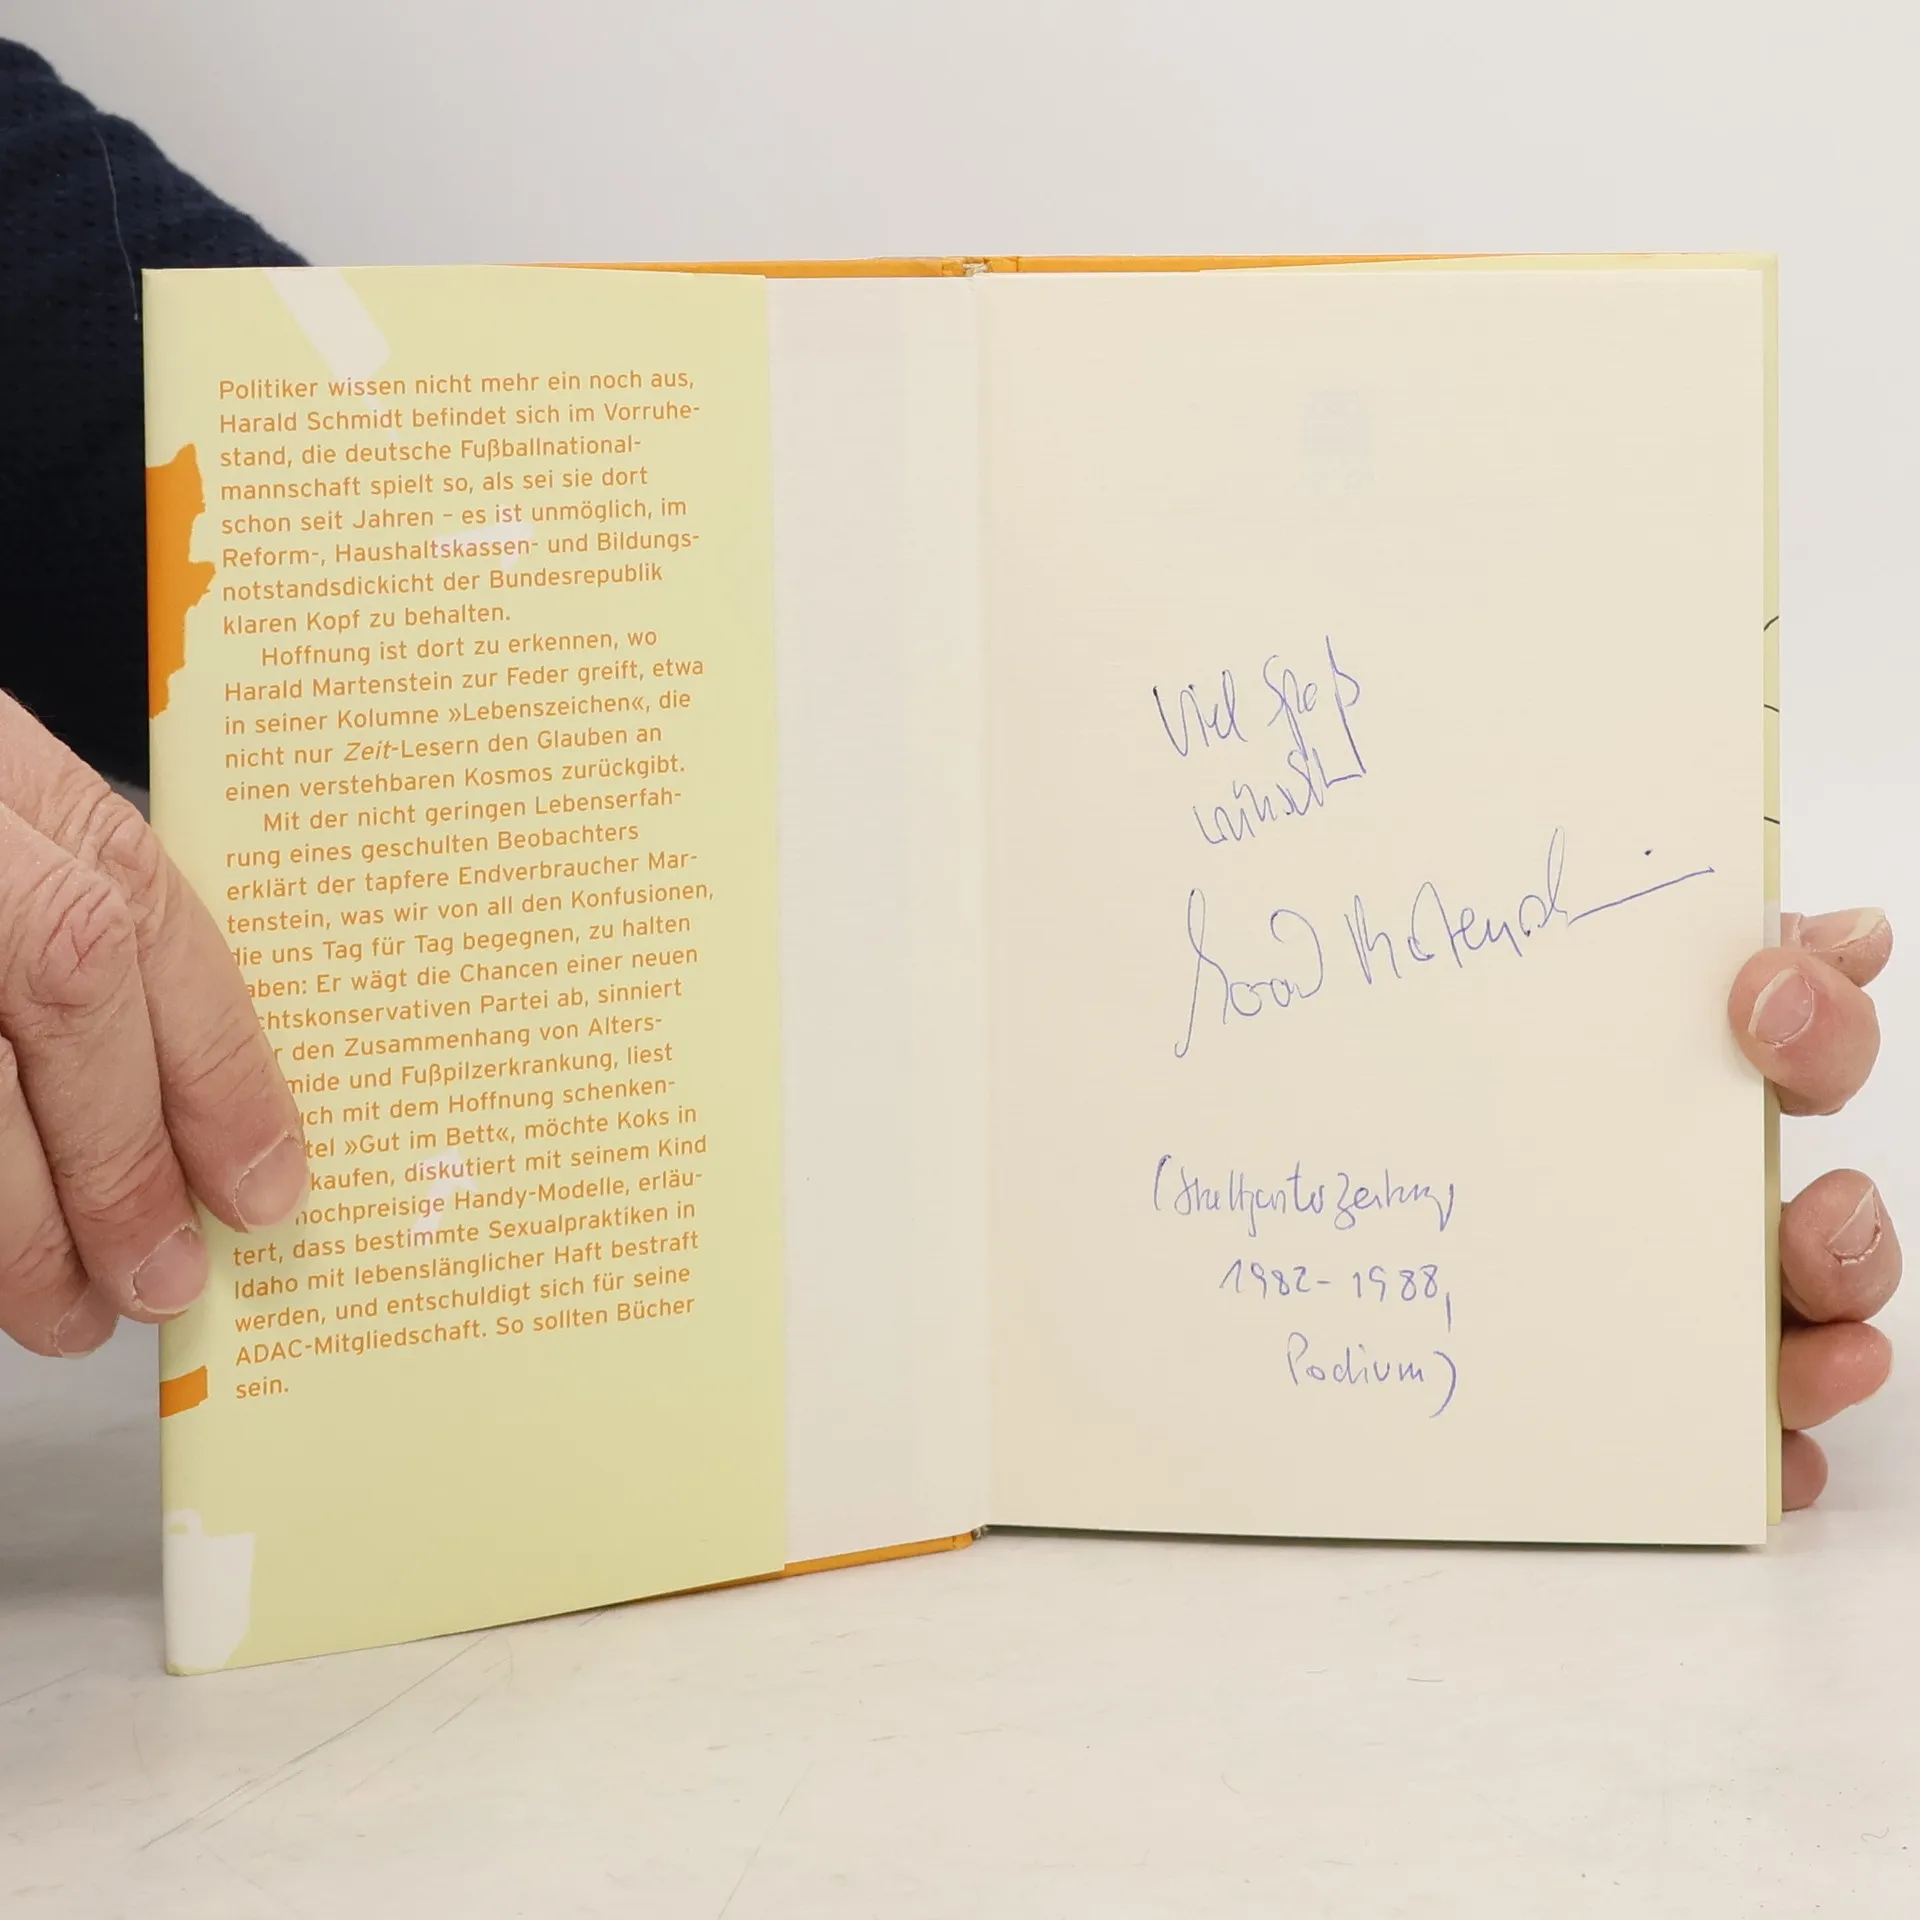 Politiker wissen nicht mehr ein noch aus,
Harald Schmidt befindet sich im Vorruhe-
stand, die deutsche Fußballnational-
mannschaft spielt so, als sei sie dort
schon seit Jahren – es ist unmöglich, im
Reform-, Haushaltskassen- und Bildungs-
notstandsdickicht der Bundesrepublik
klaren Kopf zu behalten.
Hoffnung ist dort zu erkennen, wo
Harald Martenstein zur Feder greift, etwa
in seiner Kolumne »Lebenszeichen«, die
nicht nur Zeit-Lesern den Glauben an
einen verstehbaren Kosmos zurückgibt.
Mit der nicht geringen Lebenserfah-
rung eines geschulten Beobachters
erklärt der tapfere Endverbraucher Mar-
tenstein, was wir von all den Konfusionen,
die uns Tag für Tag begegnen, zu halten
aben: Er wägt die Chancen einer neuen
chtskonservativen Partei ab, sinniert
r den Zusammenhang von Alters-
mide und Fußpilzerkrankung, liest
ch mit dem Hoffnung schenken-
tel »Gut im Bett«, möchte Koks in
kaufen, diskutiert mit seinem Kind
hochpreisige Handy-Modelle, erläu-
tert, dass bestimmte Sexualpraktiken in
Idaho mit lebenslänglicher Haft bestraft
werden, und entschuldigt sich für seine
ADAC-Mitgliedschaft. So sollten Bücher
sein.
Viel Spaß
wünscht
Harald Martenstein
(Stuttgarter Zeitung
1982-1988,
Podium)